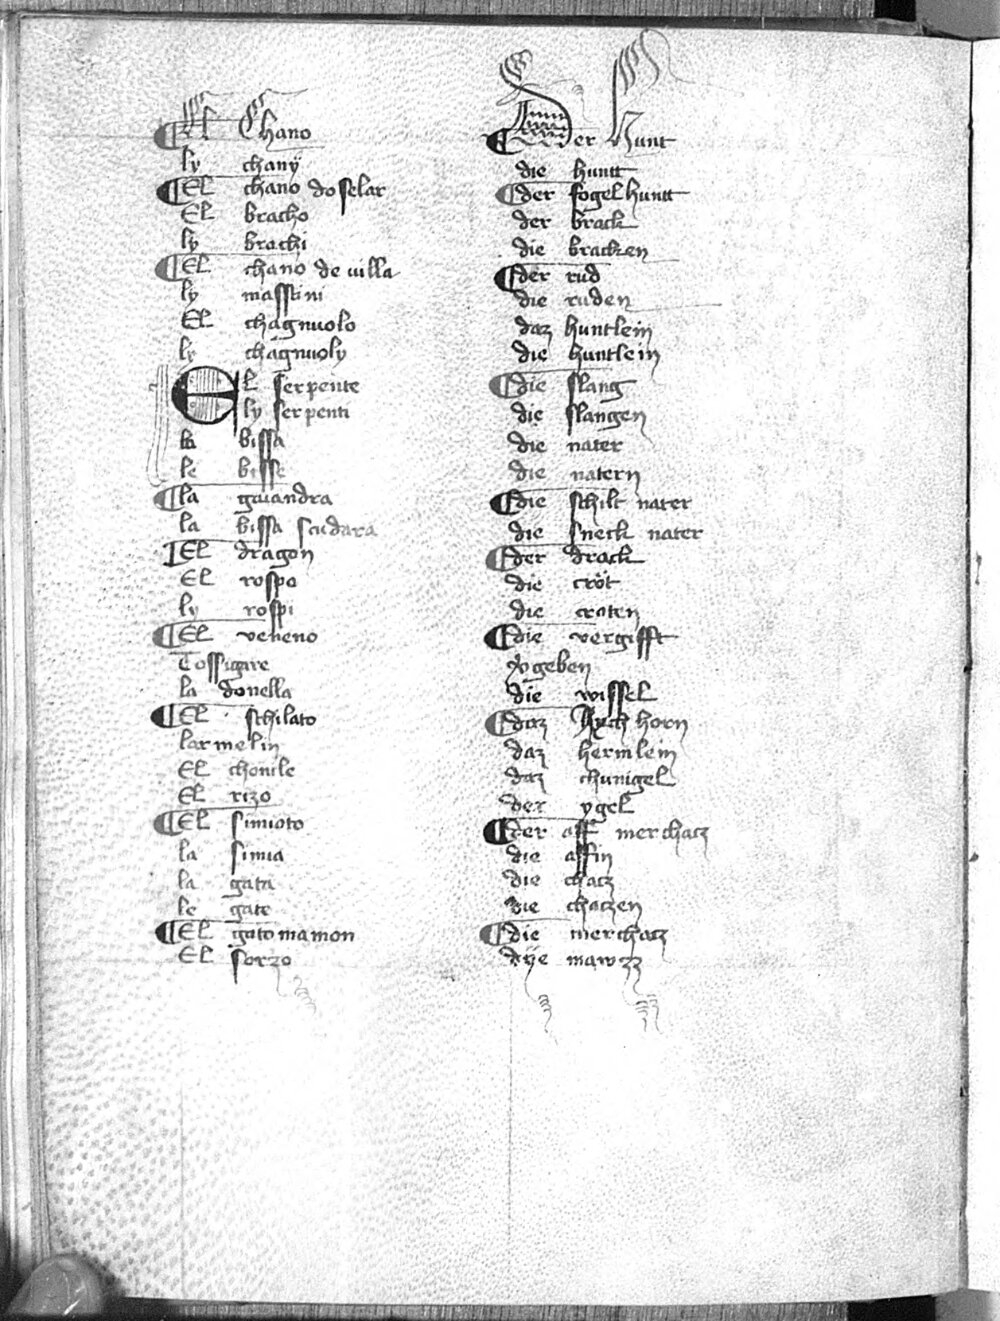 El Chano
ly chanÿ
El chano da selar
El bracho
ly brachi
El chano de uilla
ly masstini
El chagnuolo
ly chagnuoly
El serpente
ly serpenti
la bissa
le bisse
la gaiandra
la bissa scudara
El dragon
El rospo
ly rospi
El veneno
Tossigare
la donella
El schilato
larmelin
El chonile
El rizo
El simioto
la simia
la gata
le gate
El gato mamon
El sorzo
Der Hunt
die huntt
der fogel huntt
der brack
die bracken
der rud
die ruden
daz huntlein
die huntlein
die slang
die slangen
die nater
die natern
die schilt nater
die sneck nater
der drack
die cröt
die croten
die vergifft
geben
die wissel
daz horn
daz hermlein
daz chunigel
der ygel
der aff merchacz
die affin
die chacz
die chaczen
die merchacz
dÿe mawzz